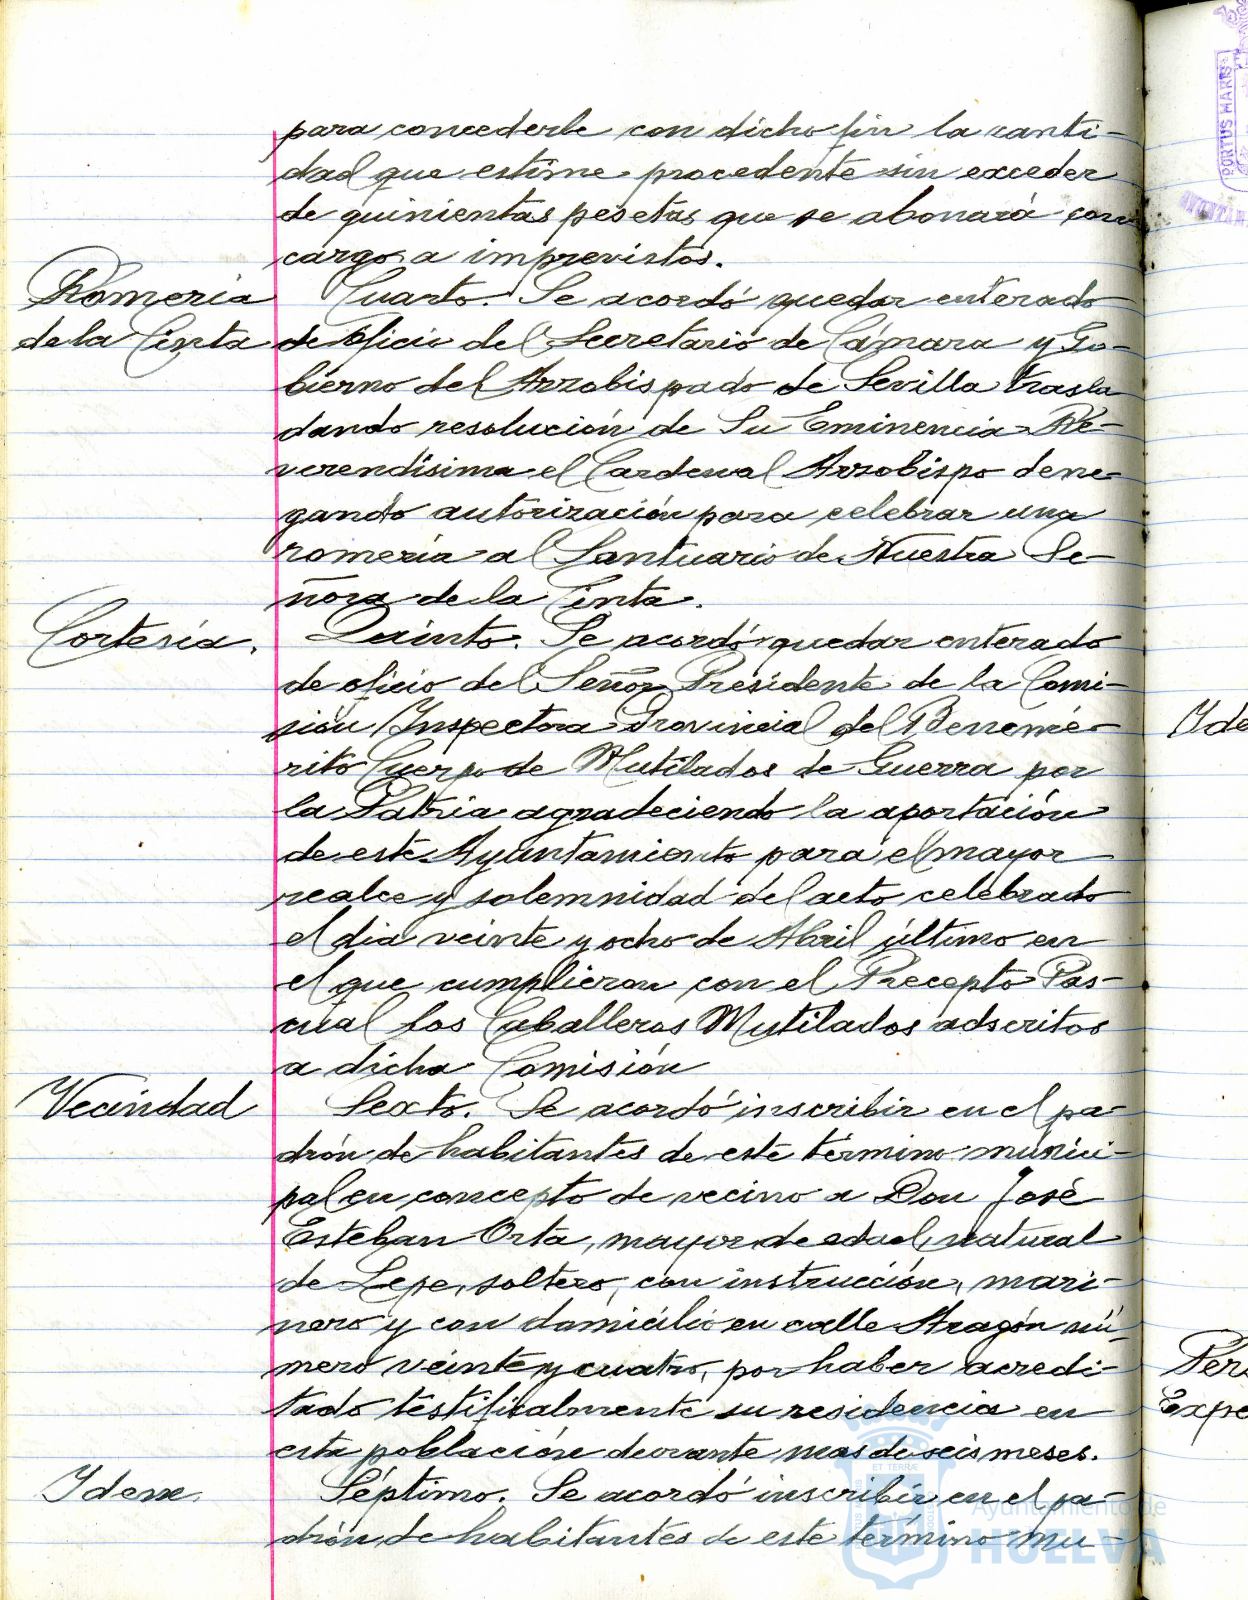 para concederle con dicho fin la canti-
dad que estime procedente sin exceder
de quinientas pesetas que se abonará con
cargo a imprevistos.
Romeria
de la Cinta
Cuarto. Se acordó quedar enterado
de oficio del Secretario de Cámara y Go-
bierno del Arzobispado de Sevilla trasla
dando resolución de Su Eminencia Re-
verendísima el Cardenal Arzobispo dene-
gando autorización para celebrar una
romería al Santuario de Nuestra Se-
ñora de la Cinta.
Cortesía.
Quinto. Se acordó quedar enterado
de oficio del Señor Presidente de la Comi-
sión Inspectora Provincial del Benemé-
rito Cuerpo de Mutilados de Guerra por
la Patria agradeciendo la aportación
de este Ayuntamiento para el mayor
realce y solemnidad del acto celebrado
el dia veinte y ocho de Abril último en
el que cumplieron con el Precepto Pas-
cual los Caballeros Mutilados adscritos
a dicha Comisión
Vecindad
Sexto. Se acordó inscribir en el pa-
drón de habitantes de este término munici-
pal en concepto de vecino a Don José
Esteban Orta, mayor de edad, natural
de Lepe, soltero, con instrucción, mari-
nero y con domicilio en calle Aragón nú-
mero veinte y cuatro, por haber acredi-
tado testificalmente su residencia en
esta población durante mas de seis meses.
Idem.
Séptimo. Se acordó inscribir en el pa-
drón de habitantes de este término mu-
Ide
Pers
Expe
PORTUS MARIS
Ayuntamiento de
HUELVA